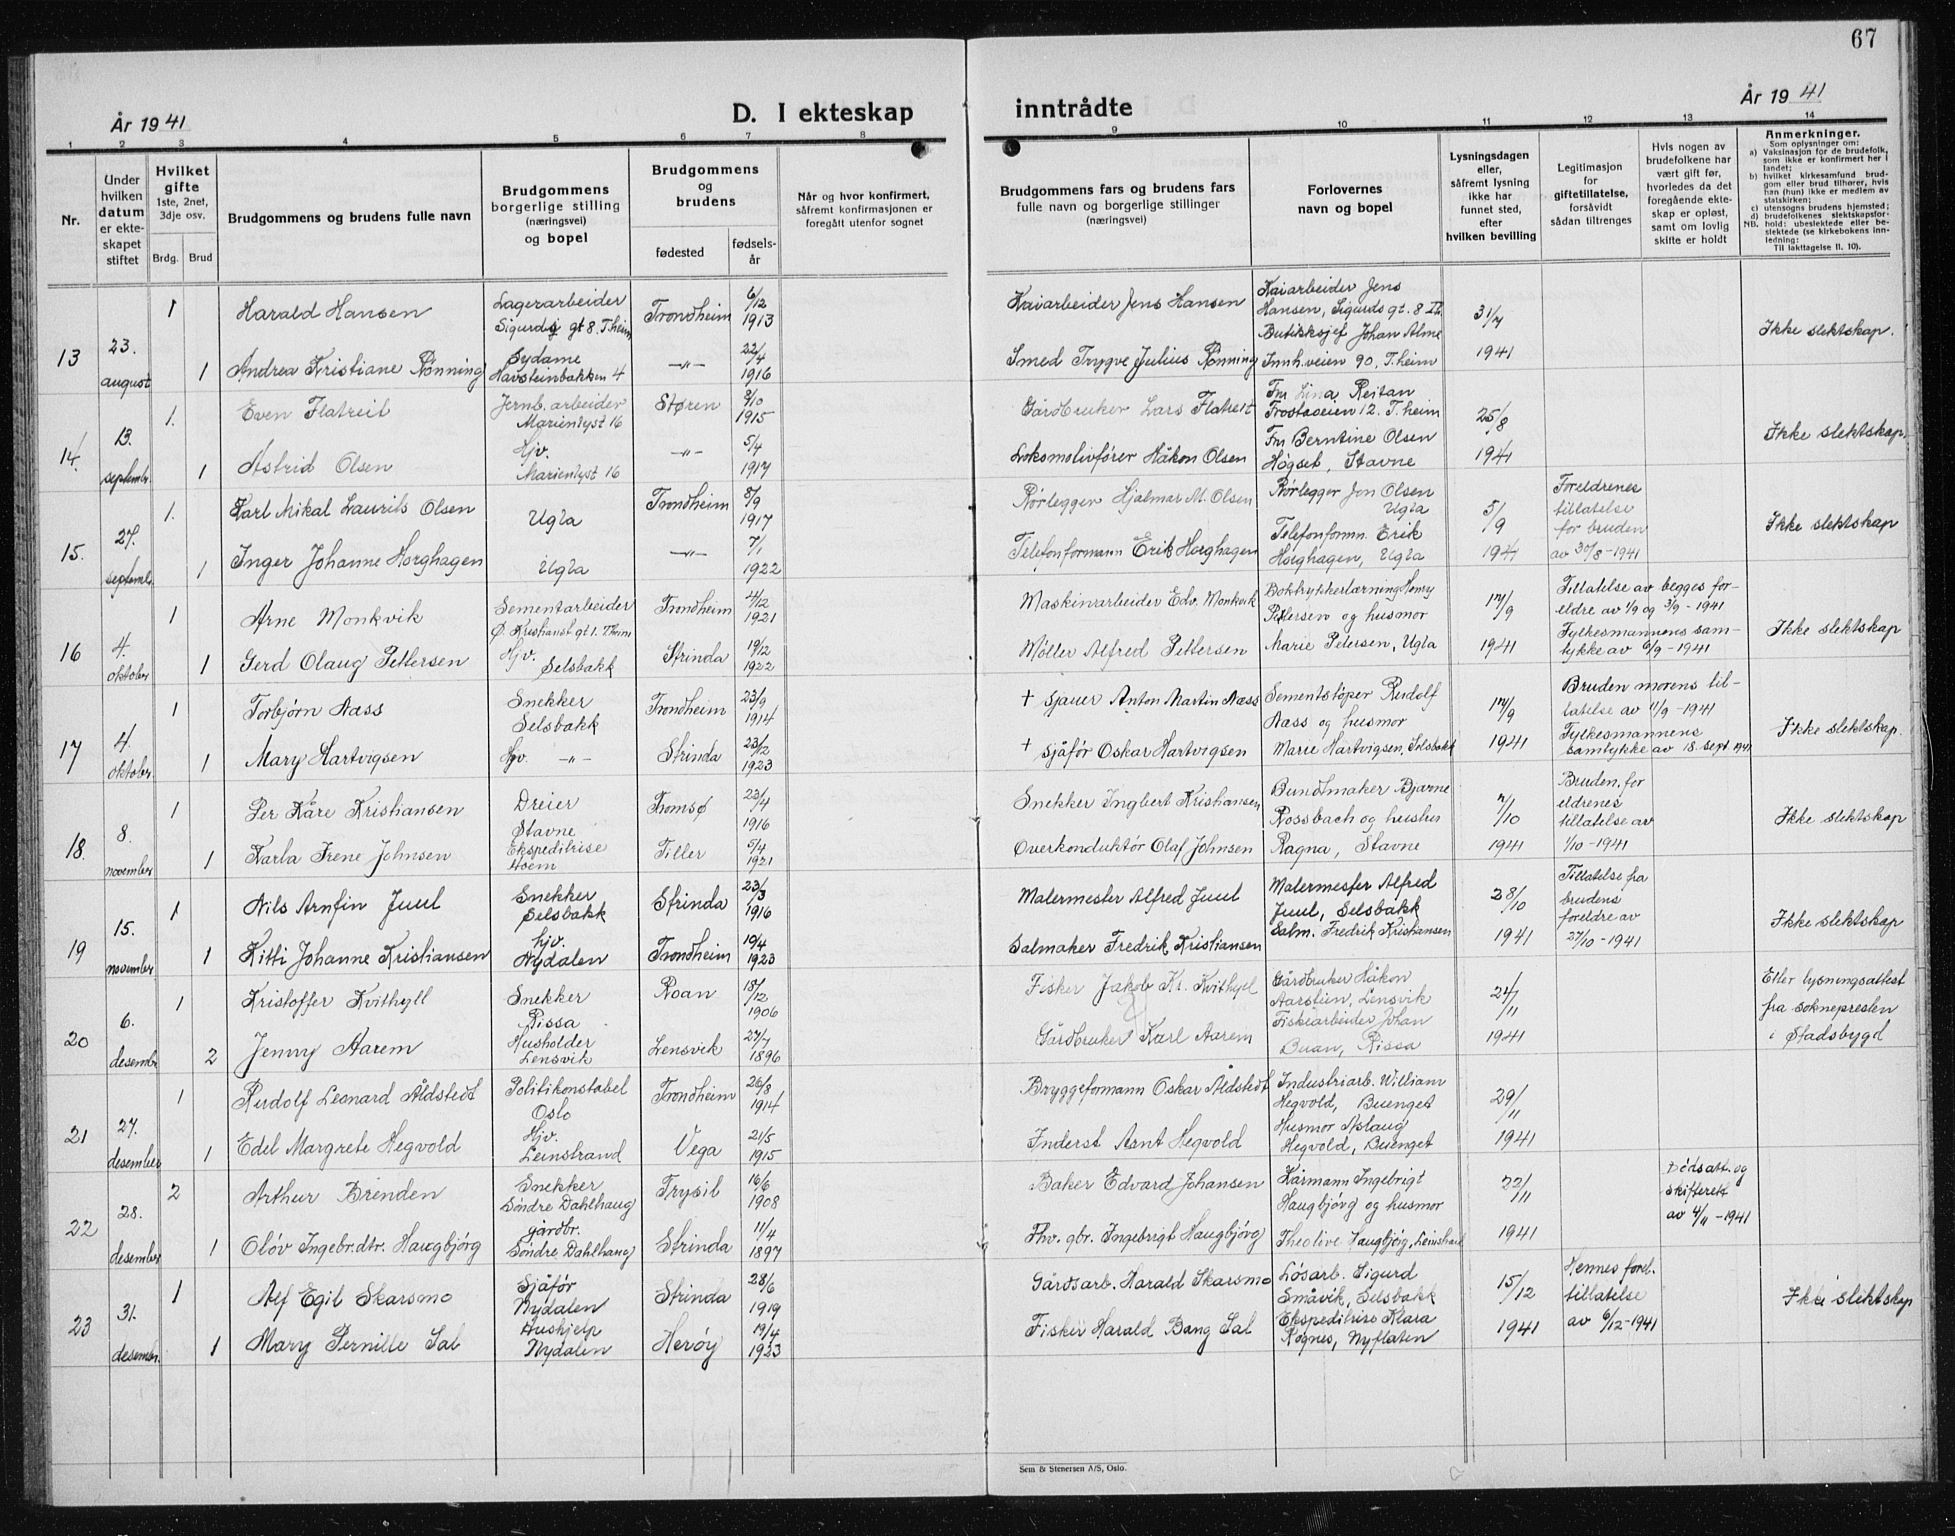 67
År 1941
D. I ekteskap
inntrådte
År 1941
1 2 3 4 5 6 7 8 9 10 11 12 13 14
Nr.
Under hvilken datum er ekteskapet stiftet
Hvilket gifte
1ste, 2net, 3dje osv.
Brdg. Brud
Brudgommens og brudens fulle navn
Brudgommens borgerlige stilling (næringsvei) og bopel
Brudgommens og brudens
fødested
fødselsår
Når og hvor konfirmert, såfremt konfirmasjonen er foregått utenfor sognet
Brudgommens fars og brudens fars fulle navn og borgerlige stillinger (næringsvei)
Forlovernes navn og bopel
Lysningsdagen eller, såfremt lysning ikke har funnet sted, efter hvilken bevilling
Legitimasjon for giftetillatelse, forsåvidt sådan tiltrenges
Hvis nogen av brudefolkene har vært gift før, hvorledes da det foregående ekteskap er opløst, samt om lovlig skifte er holdt
Anmerkninger.
Som oplysninger om:
a) Vaksinasjon for de brudefolk, som ikke er konfirmert her i landet;
b) hvilket kirkesamfund brudgom eller brud tilhører, hvis han (hun) ikke er medlem av statskirken;
c) utensogns brudens hjemsted;
d) brudefolkenes slektskapsforhold: ubeslektede eller beslektede (se kirkebokens innledning:
NB. Til iakttagelse II. 10).
13 23. august
1 Harald Hansen Lagerarbeider Sigurds gt 8. T.heim Trondheim 6/12 1913 Kaiarbeider Jens Hansen Kaiarbeider Jens Hansen, Sigurds gt. 8 31/7 Ikke slektskap.
1 Andrea Kristiane Rønning Sydame Havsteinbakken 4 —"— 22/4 1916 Smed Trygve Julius Rønning Butikksjef Johan Alme Innh.veien 90. T.heim 1941
14 13. september
1. Even Flatreit Jernb. arbeider Marienlyst 16 Støren 3/10 1915 Gårdbruker Lars Flatreit Fru Lina Reitan 12. T.heim 25/8 Ikke slektskap.
1 Astrid Olsen Hjv. Marienlyst 16 —"— 5/4 1917 Lokomotivfører Håkon Olsen Fru Berntine Olsen Høgset, Stavne 1941
15. 27. septemb.
1. Karl Mikal Laurits Olsen Ugla Trondheim 8/9 1917 Rørlegger Hjalmar M. Olsen Rørlegger Jon Olsen Ugla 5/9 Foreldrenes tillatelse for bruden Ikke slektskap
1 Inger Johanne Horghagen Ugla —"— 7/1 1922 Telefonformann Erik Horghagen Telefonformn. Erik Horghagen, Ugla 1941 av 30/8-1941
16 4. oktober
1 Arne Monkvik Sementarbeider Ø. Kristianst gt 1. T.heim Trondheim 4/12 1921 Maskinarbeider Edv. Monkvik Boktrykkerlærning Henry Petersen og husmor 17/9 Tillatelse av begges foreldre av 1/9 og 3/9-1941 Ikke slektskap
1 Gerd Olaug Pettersen Hjv. Selsbakk Strinda 19/12 1922 Møller Alfred Pettersen Marie Petersen, Ugla 1941 Fylkesmannens samtykke av 6/9-1941
17 4. oktober
1 Torbjørn Aass Snekker Selsbakk Trondheim 23/9 1914 + sjauer Anton Martin Aass Sementstøper Rudolf Aass og husmor 17/9 Bruden morens tillatelse av 11/9-1941 Ikke slektskap.
1 Mary Hartvigsen Hjv. —"— Strinda 23/2 1923 + sjåfør Oskar Hartvigsen Marie Hartvigsen, Selsbakk 1941 Fylkesmannens samtykke av 18. sept 1941
18. 8. november
1 Per Kåre Kristiansen Dreier Stavne Tromsø 23/4 1916 Snekker Ingbert Kristiansen Buntmaker Bjarne Rossbach og hustru 7/10 Bruden. foreldrenes tillatelse av Ikke slektskap
1 Karla Irene Johnsen Ekspeditrise Hoem Tiller 5/4 1921 Overkonduktør Olaf Johnsen Ragna, Stavne 1941 1/10-1941
19 15. november
1 Nils Arnfin Juul Snekker Selsbakk Strinda 23/3 1916 Malermester Alfred Juul Malermester Alfred Juul, Selsbakk 28/10 Tillatelse fra brudens foreldre av Ikke slektskap
1 Kitti Johanne Kristiansen hjv. Nydalen Trondheim 10/4 1923 Salmaker Fredrik Kristiansen Salm. Fredrik Kristiansen 1941 27/10-1941
20 6. desember
1 Kristoffer Kvithyll Snekker Rissa Roan 18/12 1906 Fisker Jakob Kr. Kvithyll Gårdbruker Håkon Lensvik 24/11 Etter lysningsattest fra soknepresten i Stadsbygd
2 Jenny Aarem Husholder Lensvik Lensvik 27/7 1896 Gårdbruker Karl Aarem Fiskiarbeider Johan Buan, Rissa 1941
21 27. desember
1 Rudolf Leonard Åldstedt Politikonstabel Oslo Trondheim 26/8 1914 Bryggeformann Oskar Åldstedt Industriarb. William Hegvold, Buenget 29/11
1 Edel Margrete Hegvold Hjv. Leinstrand Vega 21/5 1915 Inderst Arnt Hegvold Husmor Aslaug Hegvold, Buenget 1941
22 28. desember
2 Arthur Brenden Snekker Søndre Dahlhaug Trysil 16/6 1908 Baker Edvard Johansen Kårmann Ingebrigt Haugbjørg og husmor 22/11 Dødsatt. og skifteatt av 4/11-1941
1 Olöv Ingebr.dtr. Haugbjörg gårdbr. Søndre Dahlhaug Strinda 11/4 1897 Fhv. gbr. Ingebrigt Haugbjörg Theoline Haugbjörg, Leinstrand 1941
23 31. desembr.
1 Alf Egil Skarsmo Sjåfør Nydalen Strinda 28/6 1919 Gårdsarb. Harald Skarsmo Løsarb. Sigurd Småvik, Selsbakk 15/12 Hennes forel. tillatelse Ikke slektskap
1 Mary Pernille Sal Hushjelp Nydalen Herøy 19/4 1923 Fisker Harald Bang Sal Ekspeditrise Klara Røgnes, Nyflaten 1941 av 6/12-1941
Sem & Stenersen A/S, Oslo.